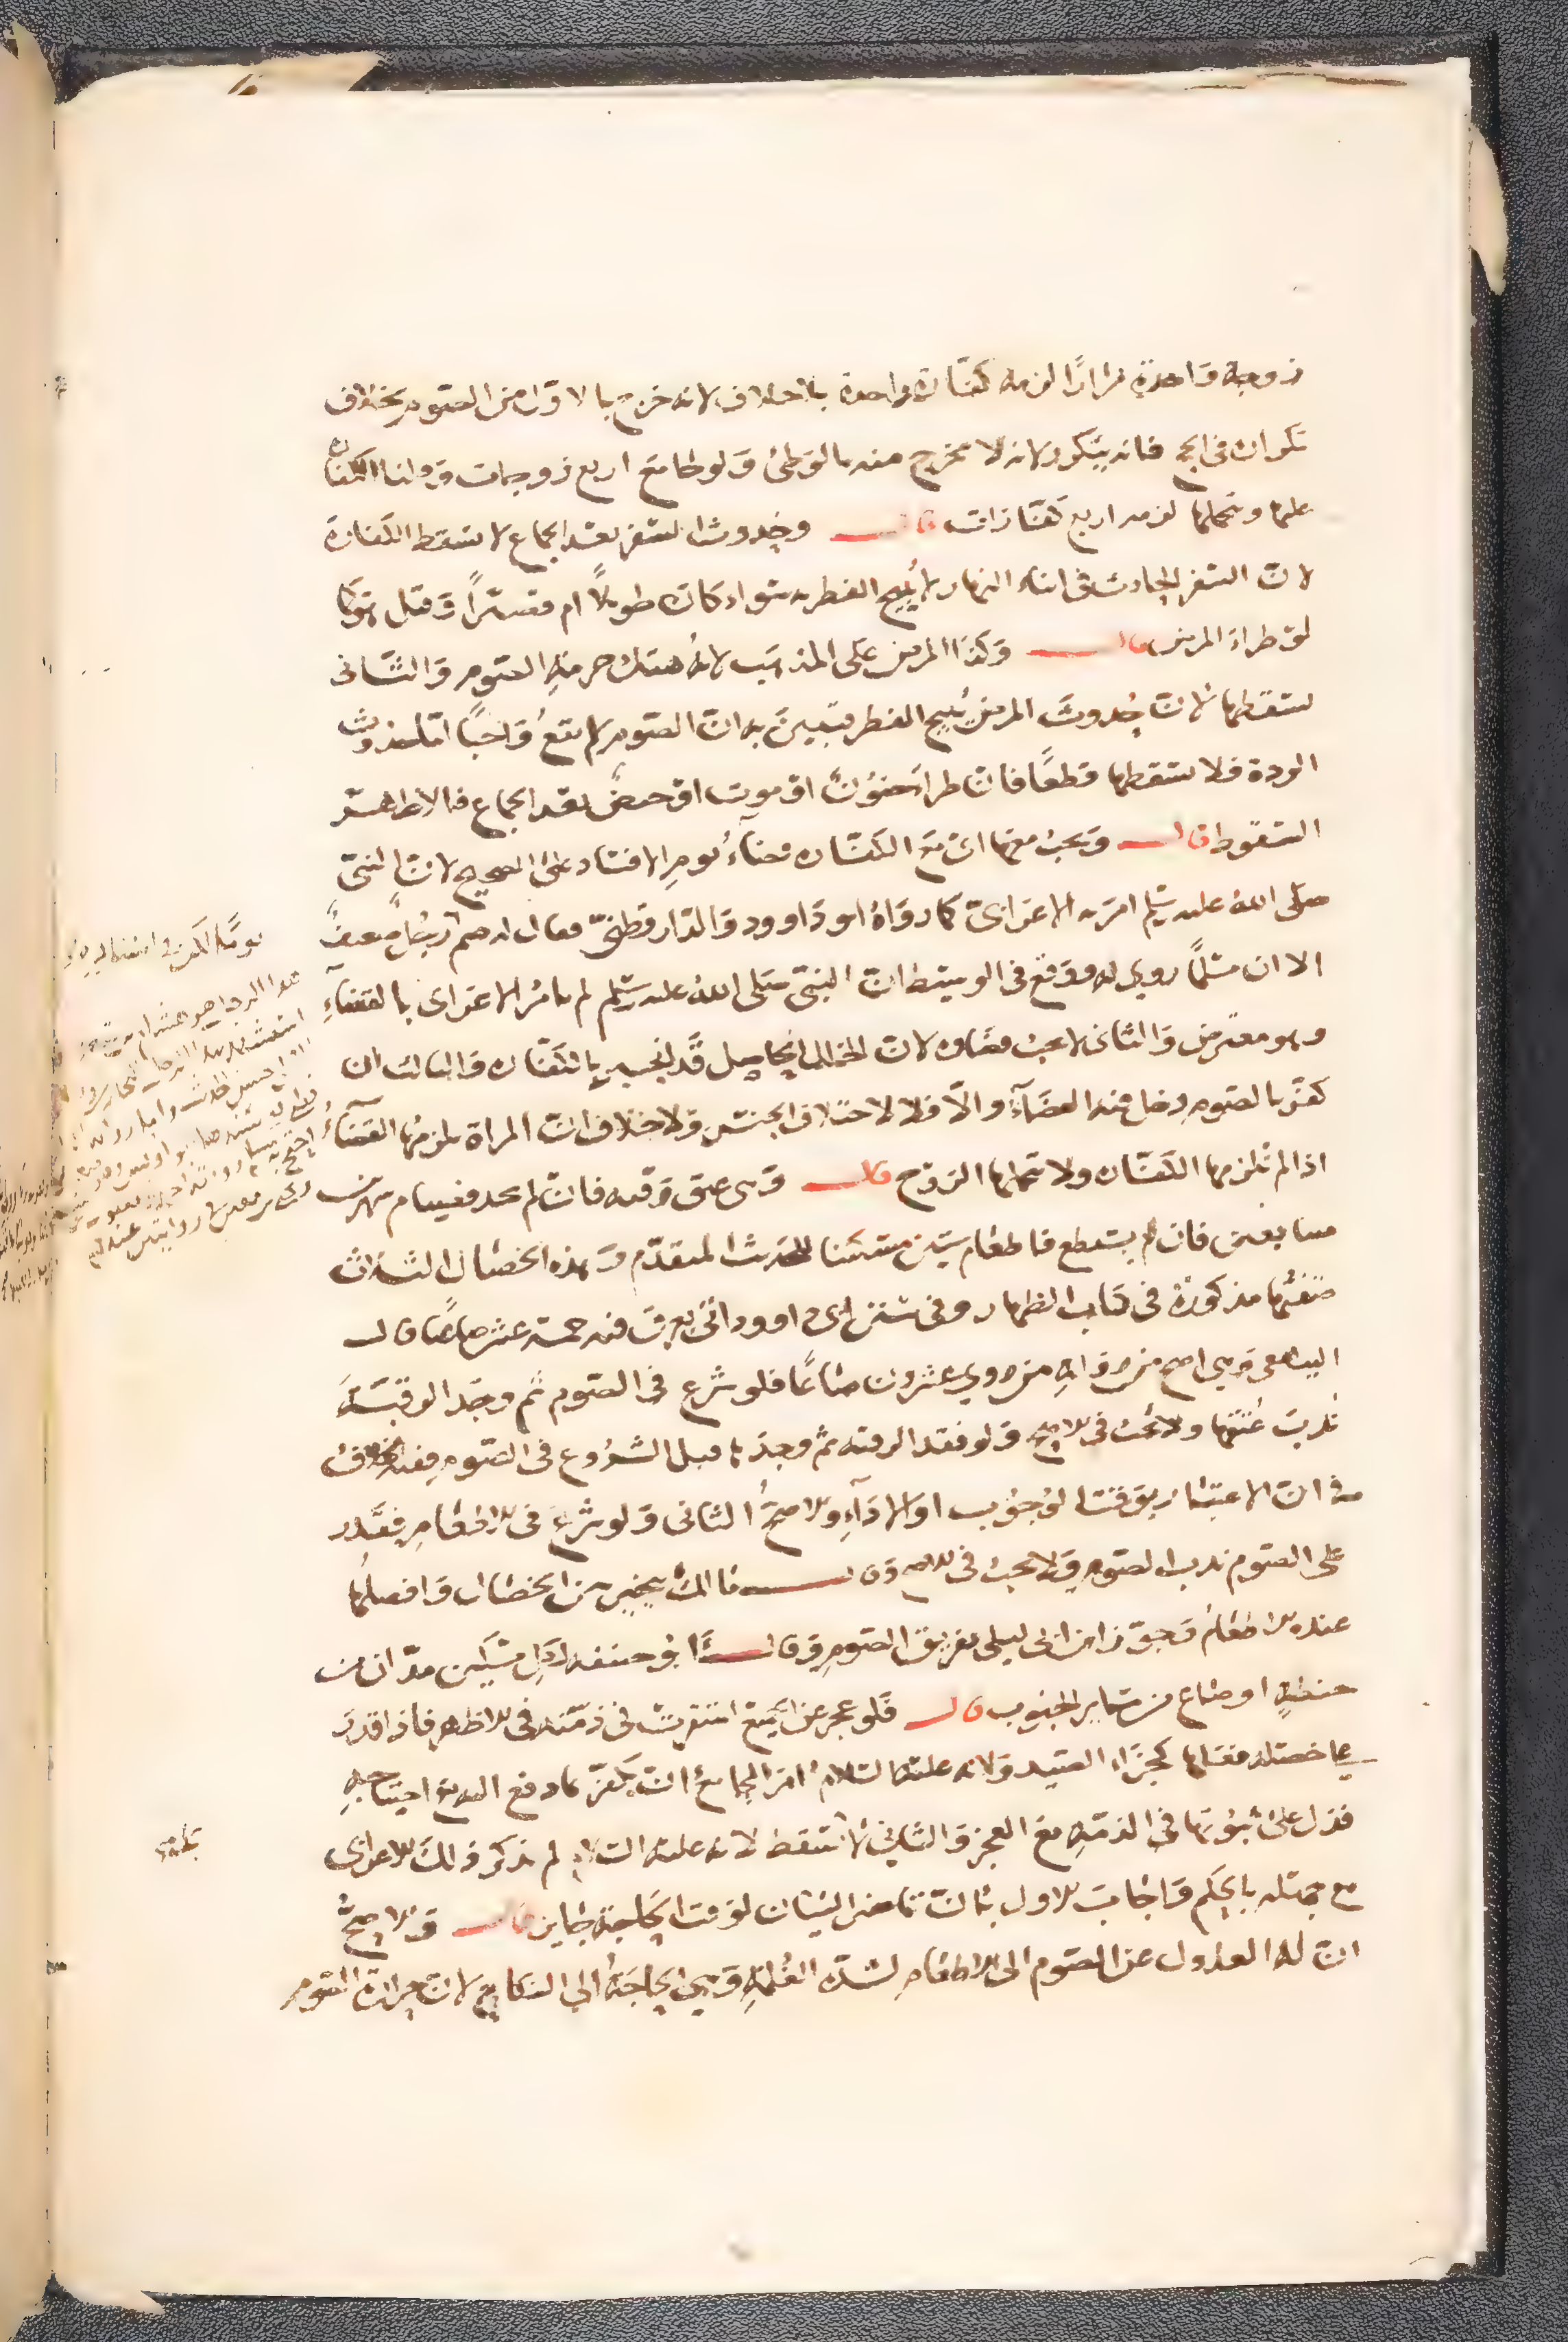 زوجة واحدة مرارًا لزمه كفارة واحدة بلا خلاف لانه خرج بالاول من الصوم بخلاف
تكرار في الحج فانه يتكرر لانه لا يخرج منه بالوطئ ولو جامع اربع زوجات وقلنا الكفارة
عليها ويتحملها لزمه اربع كفارات قال وحدوث السفر بعد الجماع لا يسقط الكفارة
لان السفر الحادث في اثناء النهار لا يبيح الفطر سواء كان طويلًا ام قصيرًا وقيل هو كما
لو طراء المرض قال وكذا المرض على المذهب لانه هتك حرمة الصوم والثاني
يسقطها لان حدوث المرض يبيح الفطر فتبين به ان الصوم لم يقع واجبًا اما حدوث
الردة فلا يسقطها قطعًا فان طرا جنون او موت او حيض بعد الجماع فالاظهر
السقوط قال ويجب معها اي مع الكفارة قضاء يوم الافساد على الصحيح لان النبي
صلى الله عليه وسلم امر به الاعرابي كما رواه ابو داوود والدارقطني وقال ابن حزم رجاله ضعيف
الا ان مسلمًا روي له ووقع في الوسيط ان النبي صلى الله عليه وسلم لم يامر الاعرابي بالقضاء
وهو معترض والثاني لا يجب قضاوه لان الخلل الحاصل قد انجبر بالكفارة والثالث ان
كفر بالصوم دخل فيه القضاء والا فلا لاختلاف الجنس ولا خلاف ان المراة يلزمها القضاء
اذا لم تلزمها الكفارة ولا تحملها الزوج قال وهي عتق رقبة فان لم يجد فصيام شهرين
متتابعين فان لم يستطع فاطعام ستين مسكينا للحديث المتقدم وهذه الخصال الثلاث
صفتها مذكورة في كتاب الظهار وفي سنن ابي داوود اتي بعرق فيه خمسة عشر صاعًا قال
البيهقي وهي اصح من رواية من روي عشرون صاعًا فلو شرع في الصوم ثم وجد الرقبة
ندب عتقها ولا يجب في الاصح ولو فقد الرقبة ثم وجدها قبل الشروع في الصوم ففيه خلاف
في ان الاعتبار بوقت الوجوب او الاداء والاصح الثاني ولو شرع في الاطعام فقدر
على الصوم ندب الصوم ولا يجب في الاصح وقال مالك يتخير بين الخصال وافضلها
عنده الاطعام وجوز ابن ابي ليلى تفريق الصوم وقال ابو حنيفه لكل مسكين مدان من
حنطة او صاع من ساير الحبوب قال فلو عجز عن الجميع استقرت في ذمته في الاظهر فاذا قدر
على خصلة فعلها كجزاء الصيد ولانه عليه السلام امر المجامع ان يكفر بما دفع اليه مع احتياجه
فدل على ثبوتها في الذمة مع العجز والثاني لا تستقط لانه عليه السلام لم يذكر ذلك للاعرابي
مع جهله بالحكم واجاب الاول بان تاخير البيان لوقت الحاجة جايز قال والاصح
ان له العدول عن الصوم الى الاطعام لشدة الغلمة وهي الحاجة الي النكاح لان حرارة الصوم